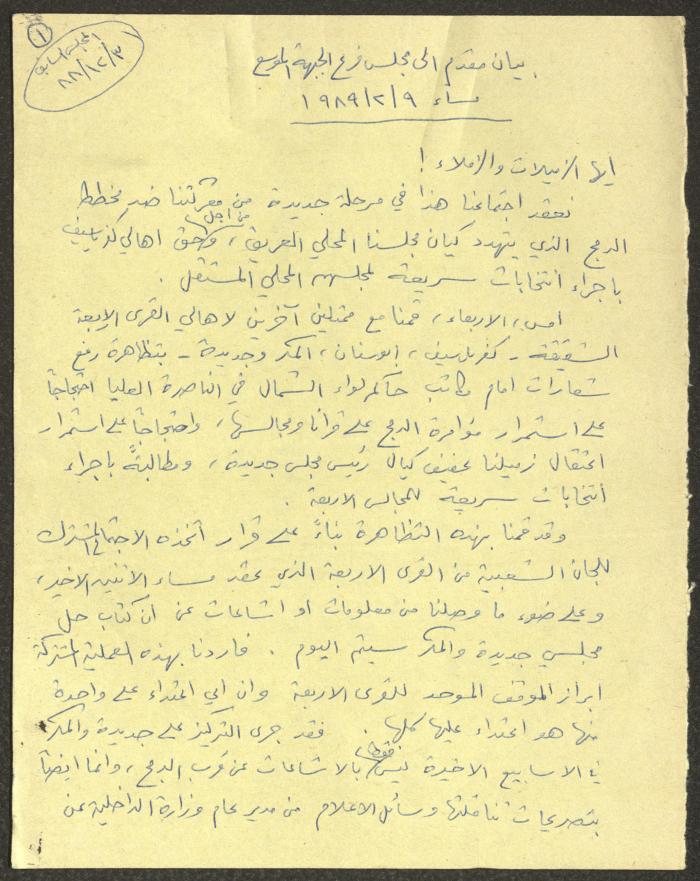 ١
المجلس السابق
٨٨/١٢/٣
بيان مقدم الى مجلس فرع الجبهة الموسع
مساء ١٩٨٩/٢/٩
ايها الزميلات والزملاء !
نعقد اجتماعنا هذا في مرحلة جديدة من معركتنا ضد مخطط
الدمج الذي يتهدد كيان مجلسنا المحلي العريق، ومن اجل حق اهالي كفرياسيف
باجراء انتخابات سريعة لمجلسهم المحلي المستقل .
امس، الاربعاء، قمنا مع ممثلين آخرين لاهالي القرى الاربعة
الشقيقة - كفرياسيف، ابوسنان، المكر وجديدة - بتظاهرة رفع
شعارات امام مكاتب حاكم لواء الشمال في الناصرة العليا احتجاجاً
على استمرار مؤامرة الدمج على قرانا ومجالسها، واحتجاجاً على استمرار
اعتقال زميلنا عفيف كيال رئيس مجلس جديدة، ومطالبةً باجراء
انتخابات سريعة للمجالس الاربعة .
وقد قمنا بهذه التظاهرة بناءً على قرار اتخذه الاجتماع المشترك
للجان الشعبية من القرى الاربعة الذي عقد مساء الاثنين الاخير،
وعلى ضوء ما وصلنا من معلومات او اشاعات عن ان كتاب حل
مجلسي جديدة والمكر سيتم اليوم . فاردنا بهذه العملية المشتركة
ابراز الموقف الموحد للقرى الاربعة وان اي اعتداء على واحدة
منها هو اعتداء عليها كلها . فقد جرى التركيز على جديدة والمكر
في الاسابيع الاخيرة ليس فقط بالاشاعات عن قرب الدمج، وانما ايضاً
بتصريحات تناقلتها وسائل الاعلام من مدير عام وزارة الداخلية عن